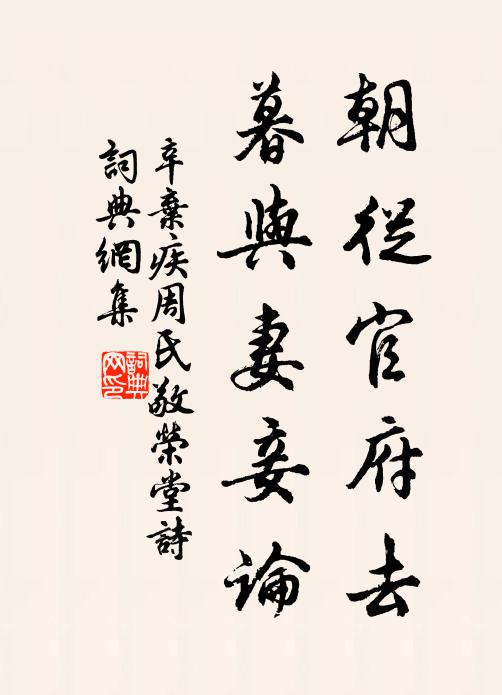 朝從官府去
暮與妻妾論
辛棄疾周氏敬榮堂詩
詞典網集
詞典網印